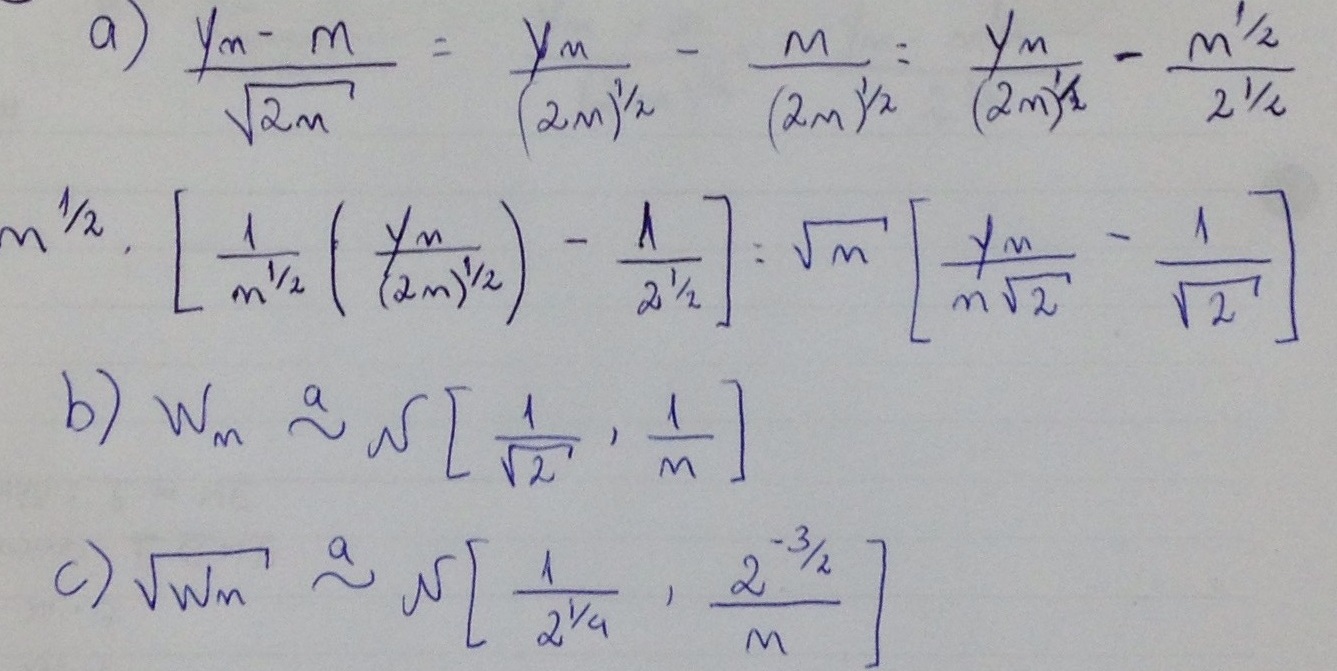 a) (Yn - n)/√(2n) = Yn/(2n)^1/2 - n/(2n)^1/2 = Yn/(2n)^1/2 - n^1/2/2^1/2
n^1/2 . [1/n^1/2 (Yn/(2n)^1/2) - 1/2^1/2] = √n [Yn/(n√2) - 1/√2]
b) Wn ~^a N[1/√2, 1/n]
c) √Wn ~^a N[1/2^1/4, 2^-3/2/n]